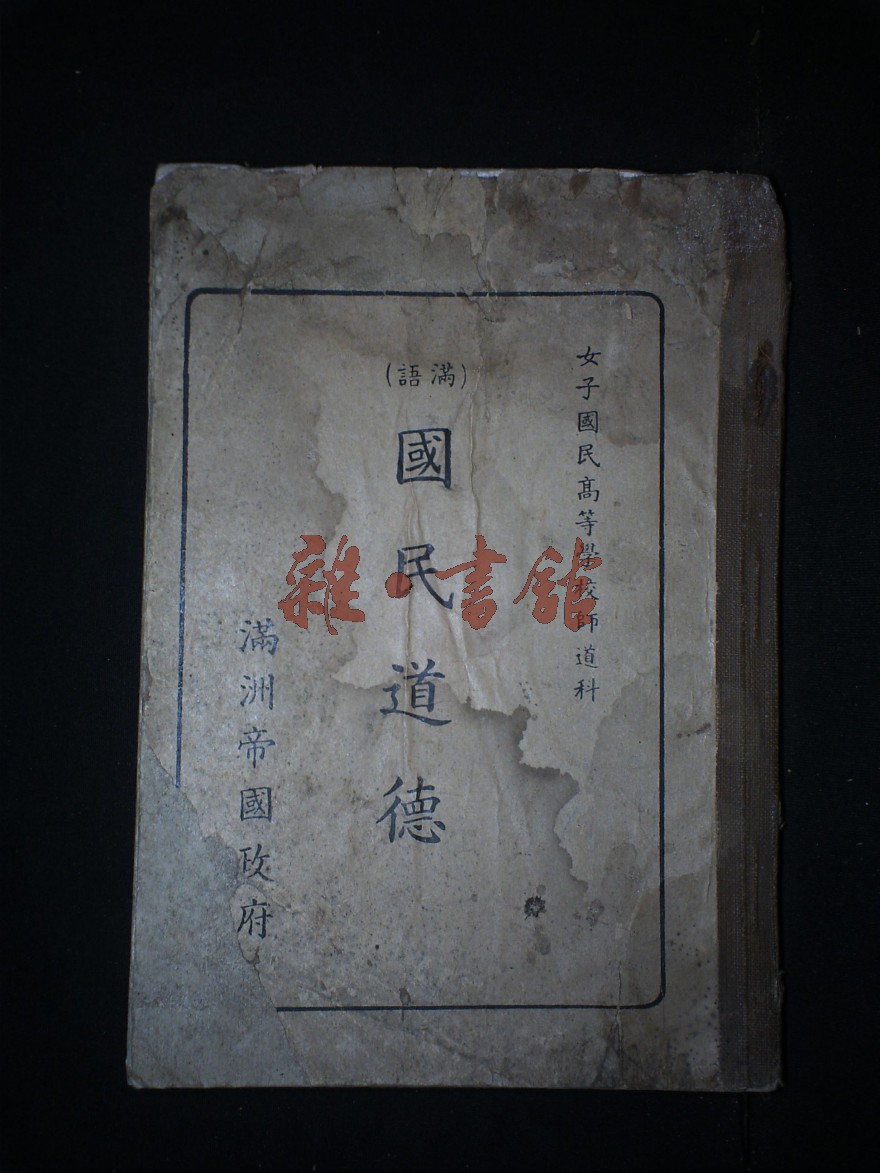 女子國民高等學校師道科
(滿語)
國民道德
滿洲帝國政府
雜·書館